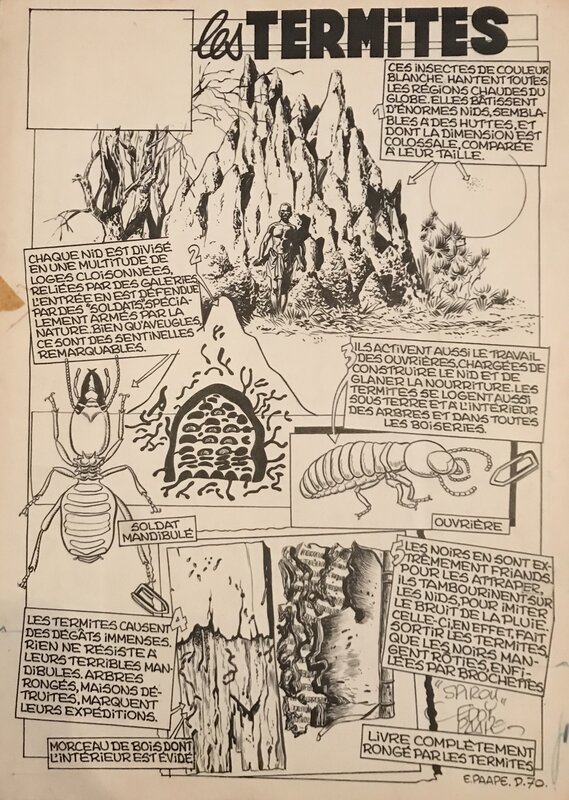 les TERMiTES
CES iNSECTES DE COULEUR
BLANCHE HANTENT TOUTES
LES RÉGIONS CHAUDES DU
GLOBE. ELLES BÂTISSENT
D'ÉNORMES NiDS, SEMBLA-
BLES À DES HUTTES, ET
DONT LA DIMENSION EST
COLOSSALE, COMPARÉE
À LEUR TAILLE.
1
CHAQUE NiD EST DIVISÉ
EN UNE MULTITUDE DE
LOGES CLOISONNÉES,
RELIÉES PAR DES GALERIES
L'ENTRÉE EN EST DÉFENDUE
PAR DES "SOLDATS" SPÉCIA-
LEMENT ARMÉS PAR LA
NATURE. BIEN QU'AVEUGLES,
CE SONT DES SENTINELLES
REMARQUABLES.
2
3
ILS ACTIVENT AUSSI LE TRAVAIL
DES OUVRIÈRES, CHARGÉES DE
CONSTRUIRE LE NID ET DE
GLANER LA NOURRITURE. LES
TERMITES SE LOGENT AUSSI
SOUS TERRE ET À L'INTÉRIEUR
DES ARBRES ET DANS TOUTES
LES BOISERIES.
SOLDAT
MANDIBULÉ
OUVRIÈRE
4
LES TERMITES CAUSENT
DES DÉGÂTS IMMENSES.
RIEN NE RÉSISTE À
LEURS TERRIBLES MAN-
DIBULES. ARBRES
RONGÉS, MAISONS DÉ-
TRUITES, MARQUENT
LEURS EXPÉDITIONS.
MORCEAU DE BOIS DONT
L'INTÉRIEUR EST ÉVIDÉ
5
LES NOIRS EN SONT EX-
TRÊMEMENT FRIANDS.
POUR LES ATTRAPER,
ILS TAMBOURINENT SUR
LES NIDS, POUR IMITER
LE BRUIT DE LA PLUIE
CELLE-CI, EN EFFET, FAIT
SORTIR LES TERMITES,
QUE LES NOIRS MAN-
GENT RÔTIES, ENFI-
LÉES PAR BROCHETTES
"SPIROU"
EDDY
PAAPE
LIVRE COMPLÈTEMENT
RONGÉ PAR LES TERMITES
E.PAAPE. D.70.